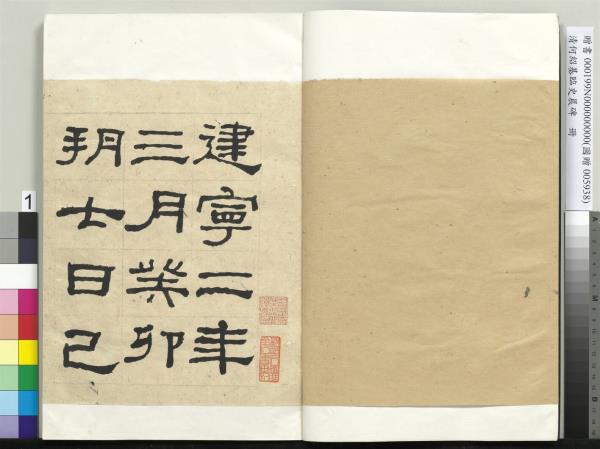 建寧二年
三月癸卯
朔七日己
贈書 000199N000000000(國贈 005938)
清何紹基臨史晨碑 冊
1
A